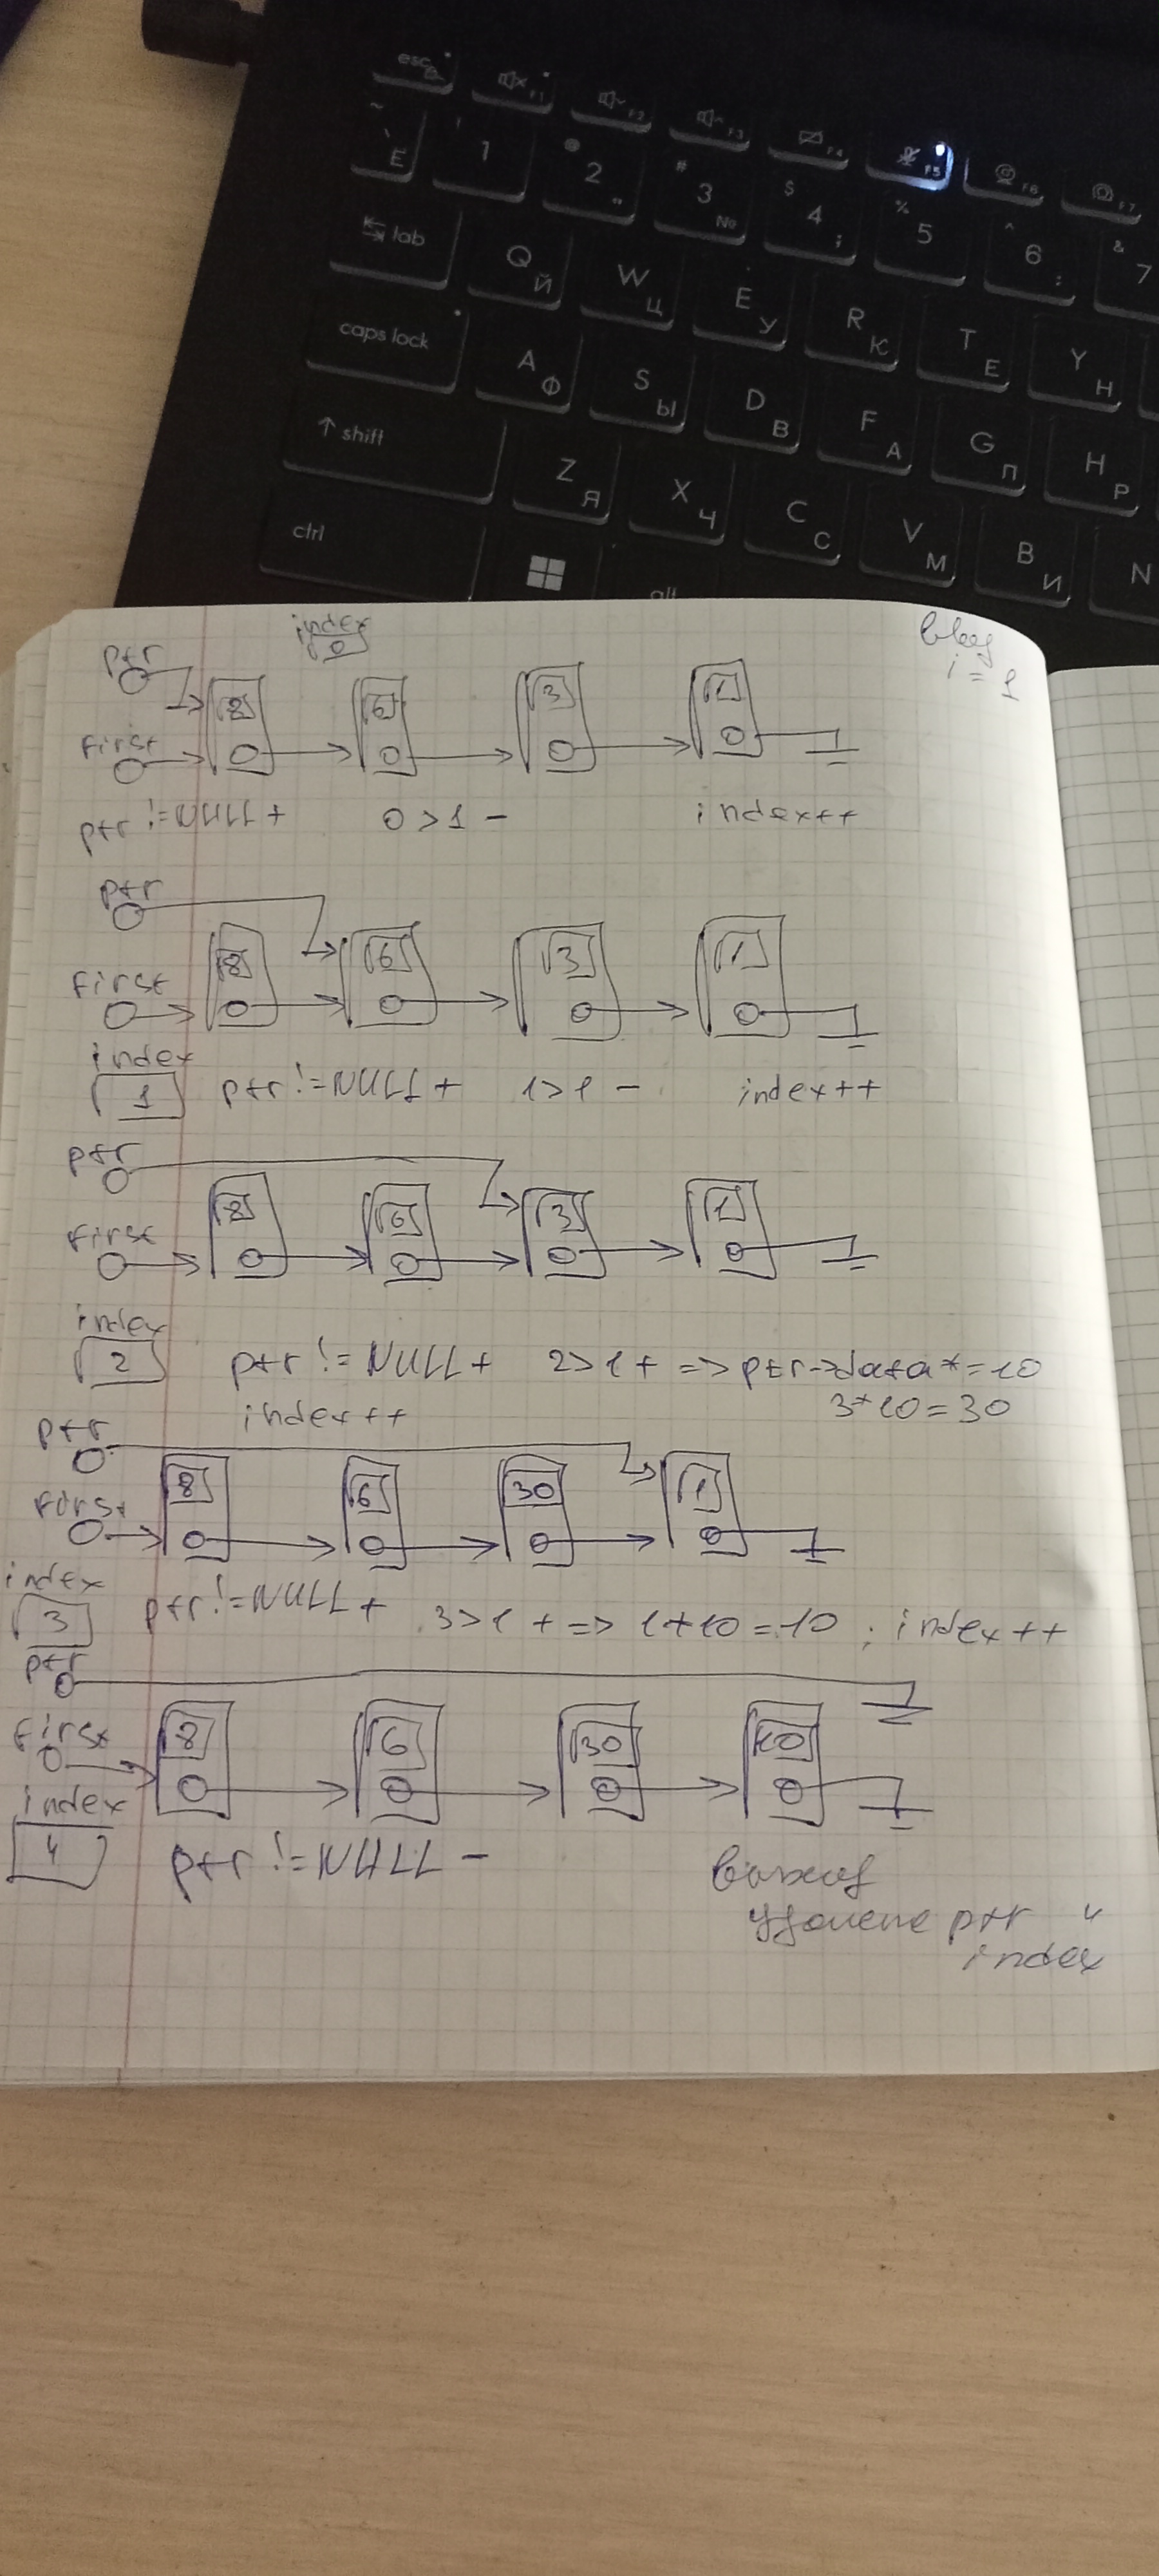 esc
F1
F2
F3
F4
F5
F6
F7
~ ` Ё
! 1
@ 2 "
# 3 №
$ 4 ;
% 5
^ 6 :
& 7
tab
Q Й
W Ц
E У
R К
T Е
Y Н
caps lock
A Ф
S Ы
D В
F А
G П
H Р
shift
Z Я
X Ч
C С
V М
B И
N
ctrl
alt
index
0
ввод
i = 1
ptr
8 6 3 1
first
ptr != NULL + 0 > 1 - index++
ptr
8 6 3 1
first
index
1 ptr != NULL + 1 > 1 - index++
ptr
8 6 3 1
first
index
2 ptr != NULL + 2 > 1 + => ptr->data *= 10
index++ 3*10 = 30
ptr
8 6 30 1
first
index
3 ptr != NULL + 3 > 1 + => 1*10 = 10 ; index++
ptr
first 8 6 30 10
index
4 ptr != NULL -
выход
ptr и
index